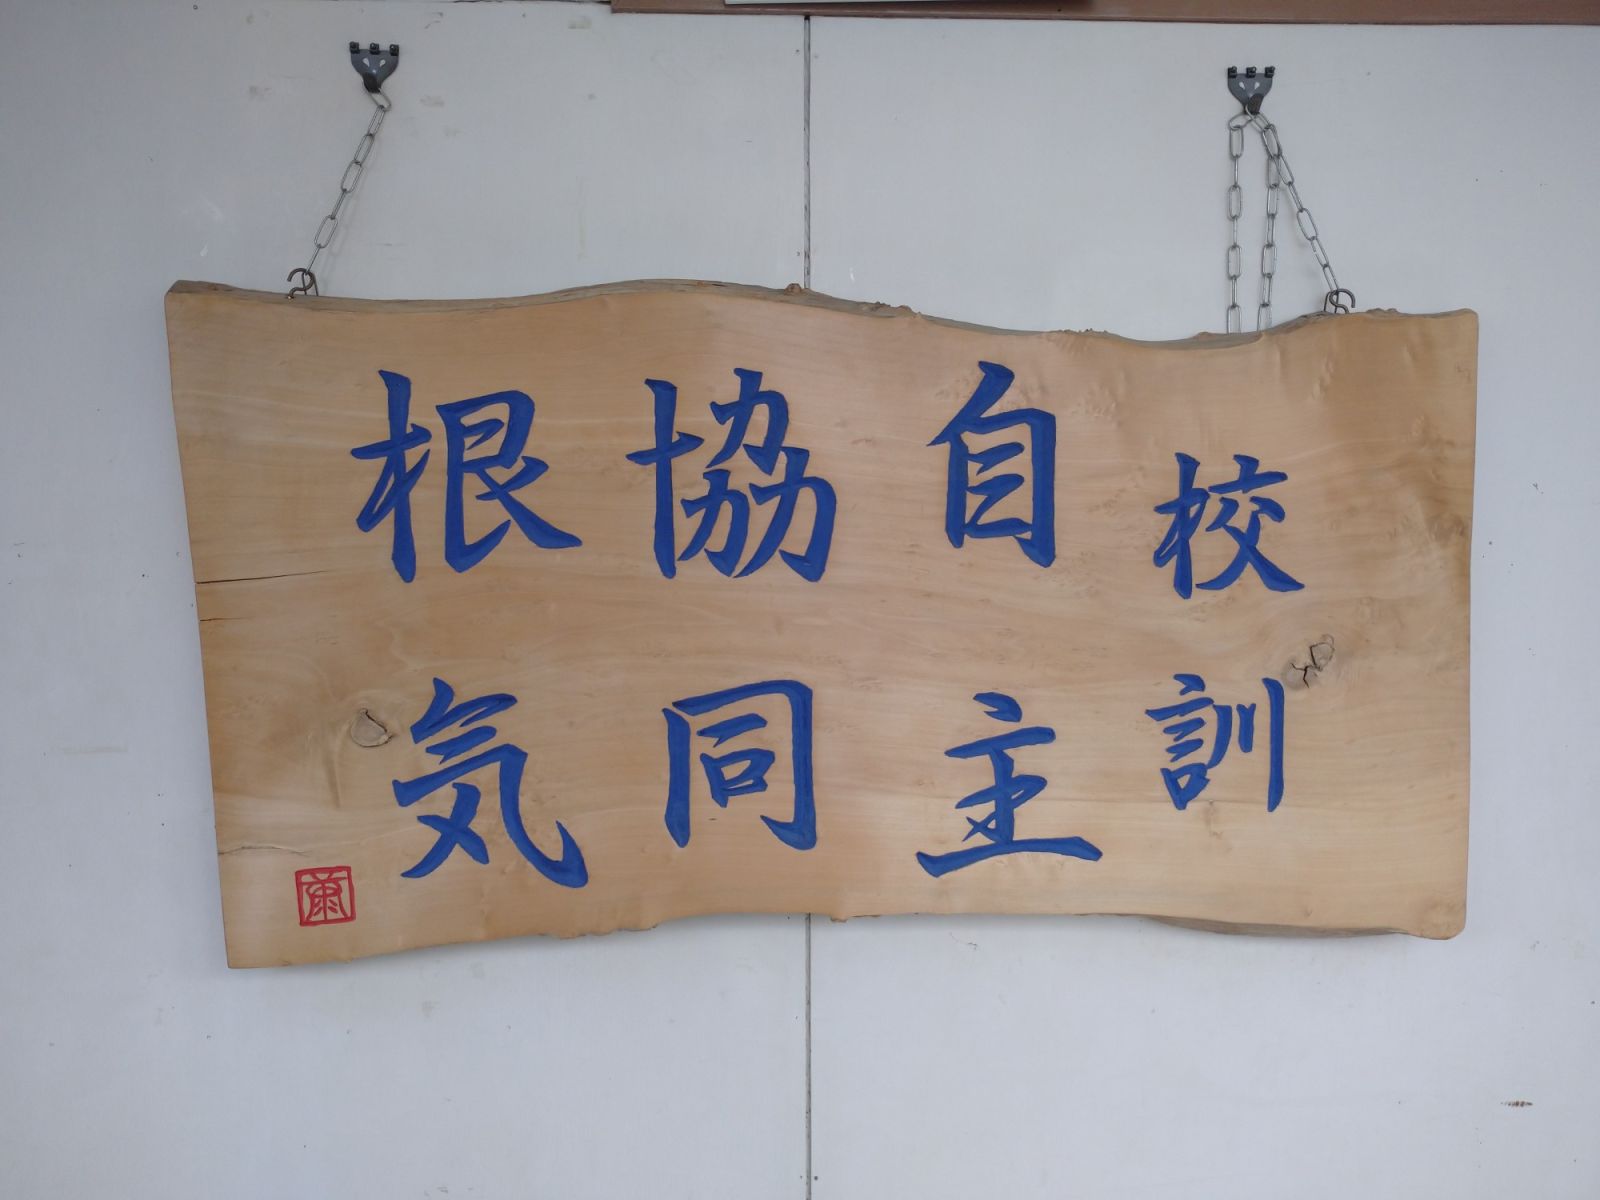 校訓
自主
協同
根気